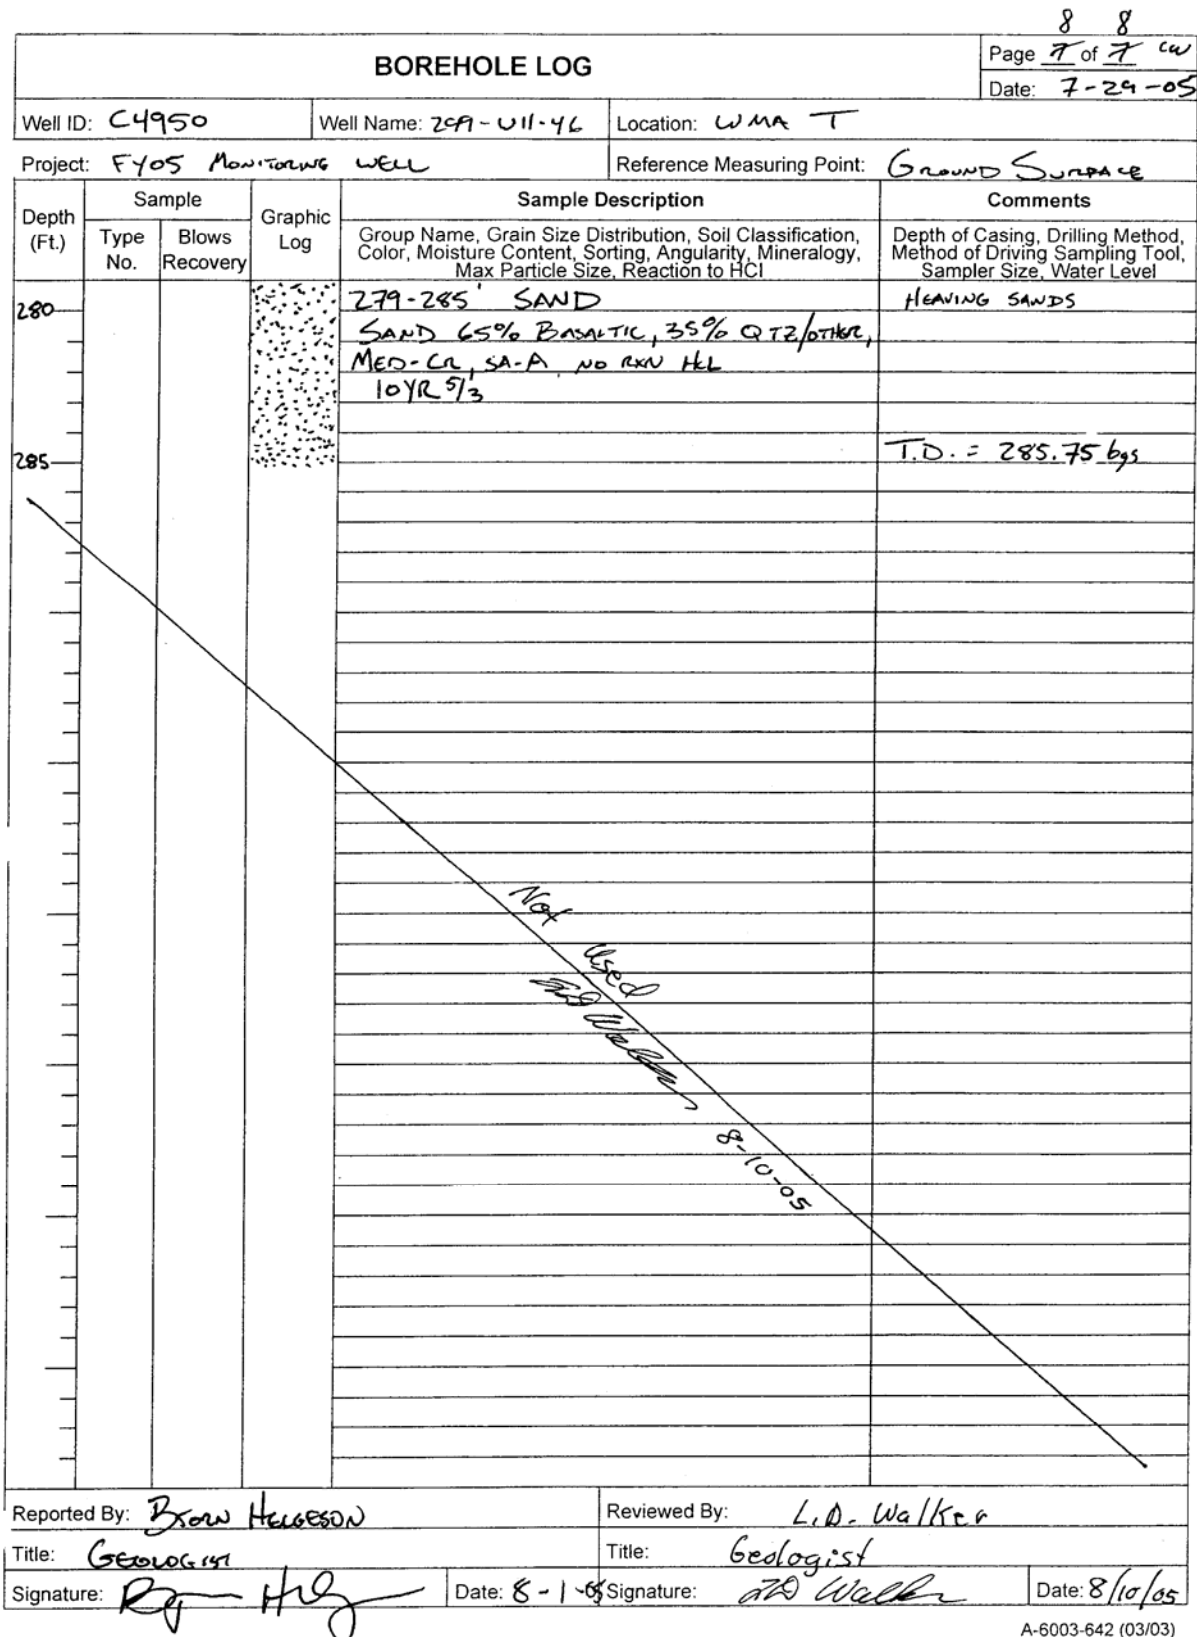 8 8
Page 7 of 7 CW
BOREHOLE LOG
Date: 7-29-05
Well ID: C4950
Well Name: 299-W11-46
Location: WMA T
Project: FY05 MONITORING WELL
Reference Measuring Point: GROUND SURFACE
Depth (Ft.)
Sample
Type No.
Blows Recovery
Graphic Log
Sample Description
Group Name, Grain Size Distribution, Soil Classification,
Color, Moisture Content, Sorting, Angularity, Mineralogy,
Max Particle Size, Reaction to HCl
Comments
Depth of Casing, Drilling Method,
Method of Driving Sampling Tool,
Sampler Size, Water Level
279-285' SAND
HEAVING SANDS
280
SAND 65% BASALTIC, 35% QTZ/OTHER,
MED-CR, SA-A NO RXN HCL
10YR 5/3
T.D. = 285.75 bgs
285
Not Used
LD Walker
8-10-05
Reported By: BJORN HELGESON
Reviewed By: L.D. Walker
Title: GEOLOGIST
Title: Geologist
Signature:
Date: 8-1-05
Signature: LD Walker
Date: 8/10/05
A-6003-642 (03/03)